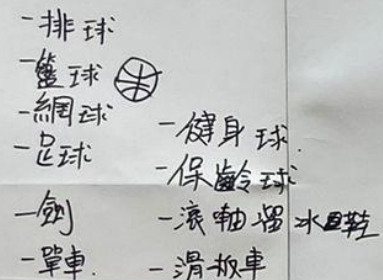 -排球
-籃球
-網球
-足球
-劍
-單車.
-健身球.
-保齡球
-滾軸溜冰鞋
-滑板車